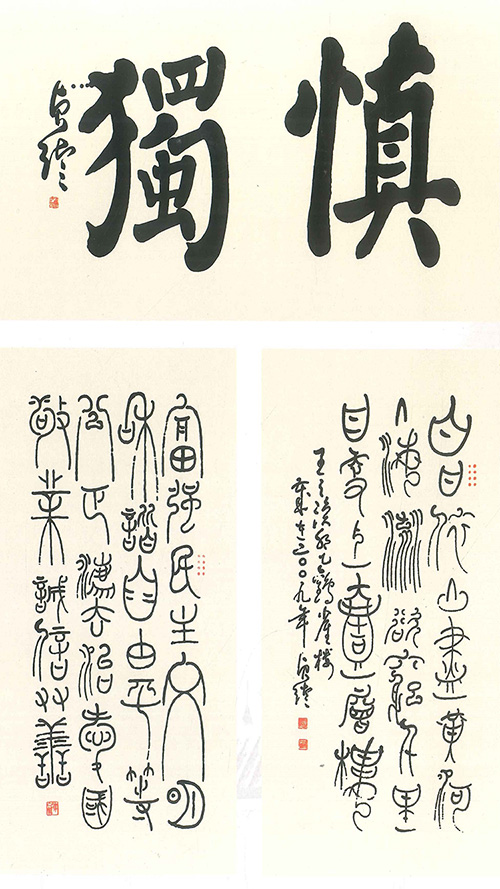 慎獨
白日依山盡黃河
入海流欲窮千里
目更上一層樓
王之渙登鸛雀樓
二〇〇九年
富强民主文明
和諧自由平等
公正灋治愛國
敬業誠信友善